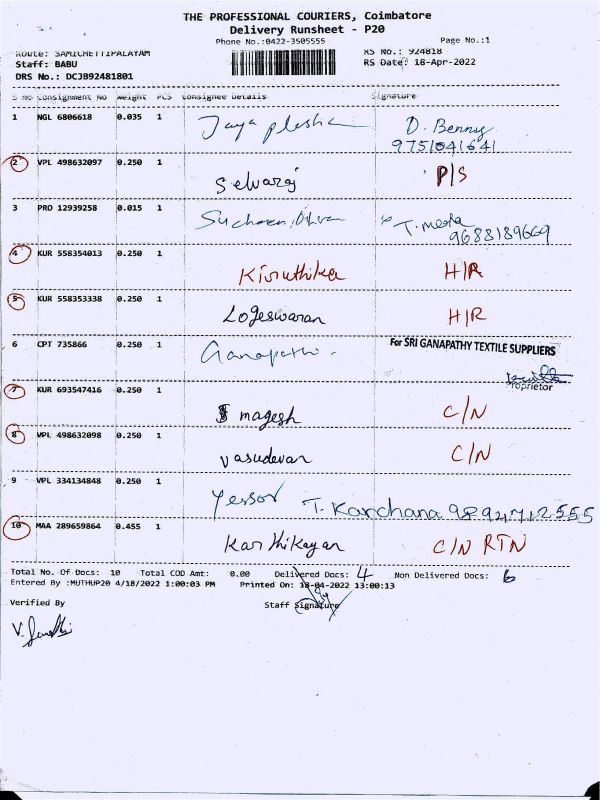 THE PROFESSIONAL COURIERS, Coimbatore
Delivery Runsheet - P20
Phone No.:0422-3505555 Page No.:1
Route: SAMICHETTIPALAYAM RS No.: 924818
Staff: BABU RS Date: 18-Apr-2022
DRS No.: DCJB92481801
S no Consignment No Weight PCS Consignee Details Signature
1 NGL 6806618 0.035 1 Jaya D. Benny
9751041641
2 VPL 498632097 0.250 1 Selvaraj P/S
3 PRO 12939258 0.015 1 T. meera
9688189669
4 KUR 558354013 0.250 1 Kiruthika H/R
5 KUR 558353338 0.250 1 Logeswaran H/R
6 CPT 735866 0.250 1 Ganapathi For SRI GANAPATHY TEXTILE SUPPLIERS
Proprietor
7 KUR 693547416 0.250 1 magesh C/N
8 VPL 498632098 0.250 1 vasudevan C/N
9 VPL 334134848 0.250 1 T. Kanchana 9894712555
10 MAA 289659864 0.455 1 Karthikeyan C/N RTN
Total No. Of Docs: 10 Total COD Amt: 0.00 Delivered Docs: 4 Non Delivered Docs: 6
Entered By :MUTHUP20 4/18/2022 1:00:03 PM Printed On: 18-04-2022 13:00:13
Verified By Staff Signature